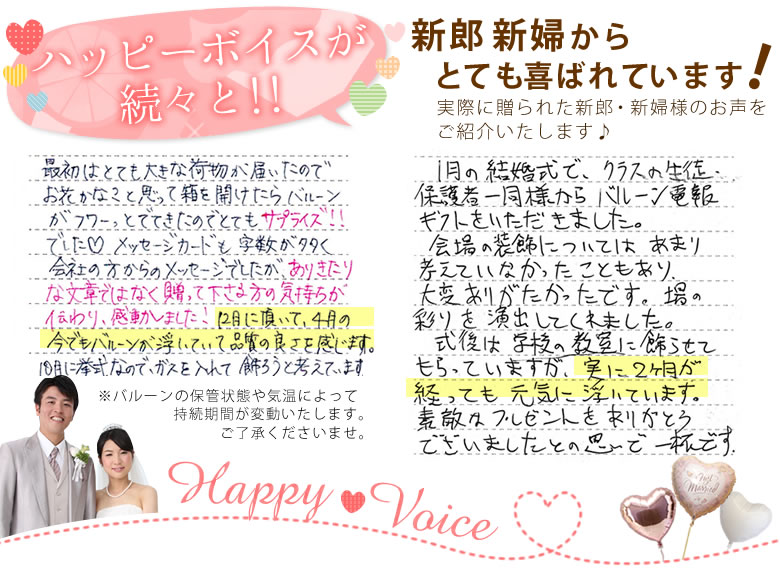 ハッピーボイスが
続々と!!
新郎 新婦から
とても喜ばれています!
実際に贈られた新郎・新婦様のお声を
ご紹介いたします♪
最初はとても大きな荷物が届いたので
お花かな?と思って箱を開けたらバルーン
がフワーっとでてきたのでとてもサプライズ!!
でした♡ メッセージカードも字数が多く
会社の方からのメッセージでしたが、ありきたり
な文章ではなく贈って下さる方の気持ちが
伝わり、感動しました! 12月に頂いて、4月の
今でもバルーンが浮いていて品質の良さを感じます。
10月に挙式なので、ガスを入れて飾ろうと考えています
※バルーンの保管状態や気温によって
持続期間が変動いたします。
ご了承くださいませ。
1月の結婚式で、クラスの生徒・
保護者一同様からバルーン電報
ギフトをいただきました。
会場の装飾についてはあまり
考えていなかったこともあり、
大変ありがたかったです。場の
彩りを演出してくれました。
式後は学校の教室に飾らせて
もらっていますが、実に2ヶ月が
経っても元気に浮いています。
素敵なプレゼントをありがとう
ございましたとの思いで一杯です。
Happy Voice
Just
Married